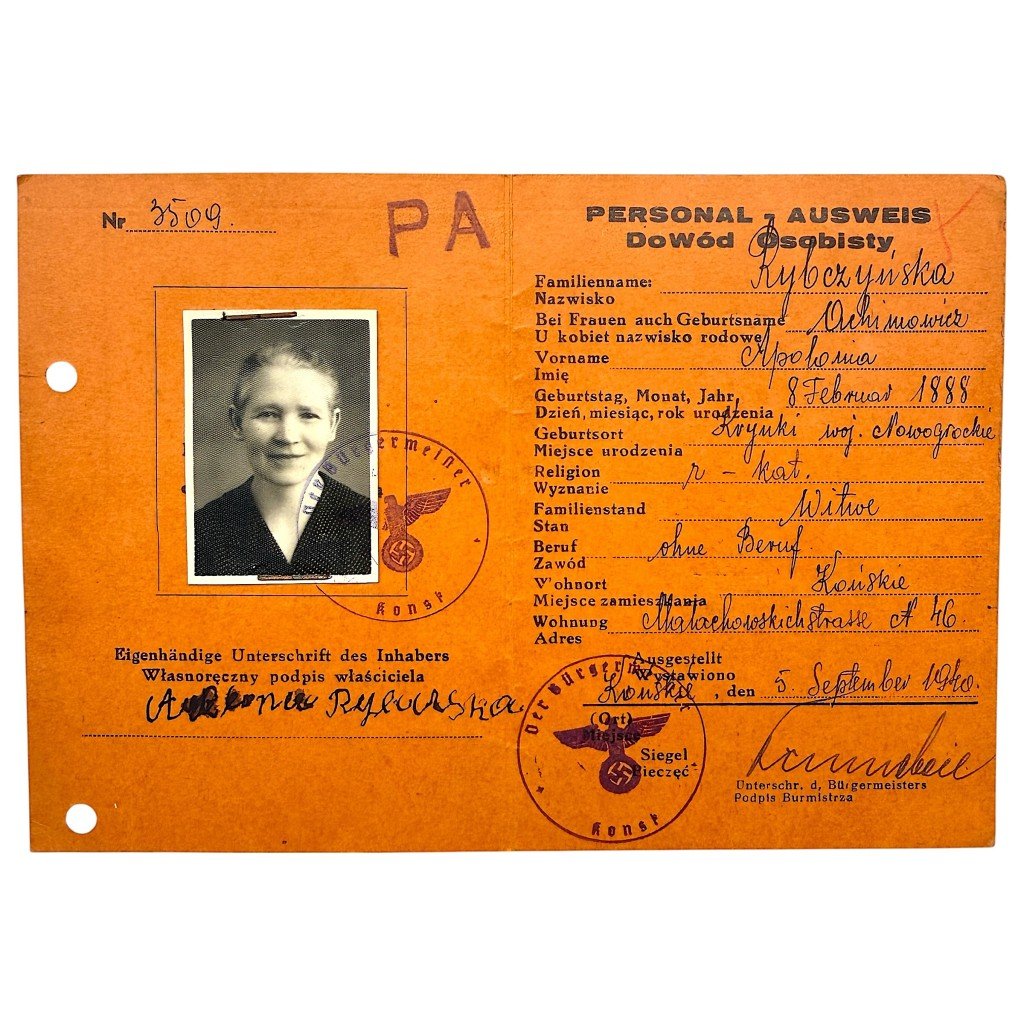 Nr 3509.
PA
Der Bürgermeister
Konsk
Eigenhändige Unterschrift des Inhabers
Własnoręczny podpis właściciela
PERSONAL - AUSWEIS
DoWód Osobisty
Familienname: Rybczyńska
Nazwisko
Bei Frauen auch Geburtsname Achimowicz
U kobiet nazwisko rodowe
Vorname Apolonia
Imię
Geburtstag, Monat, Jahr 8 Februar 1888
Dzień, miesiąc, rok urodzenia
Geburtsort Krynki woj. Nowogrockie
Miejsce urodzenia
Religion r-kat.
Wyznanie
Familienstand Witwe
Stan
Beruf ohne Beruf.
Zawód
Wohnort Końskie
Miejsce zamieszkania
Wohnung Małachowskichstrasse N 46.
Adres
Ausgestellt
Wystawiono
Końskie, den 5. September 1940.
(Ort)
Miejsce
Siegel
Pieczęć
Der Bürgermeister
Konsk
Unterschr. d. Bürgermeisters
Podpis Burmistrza